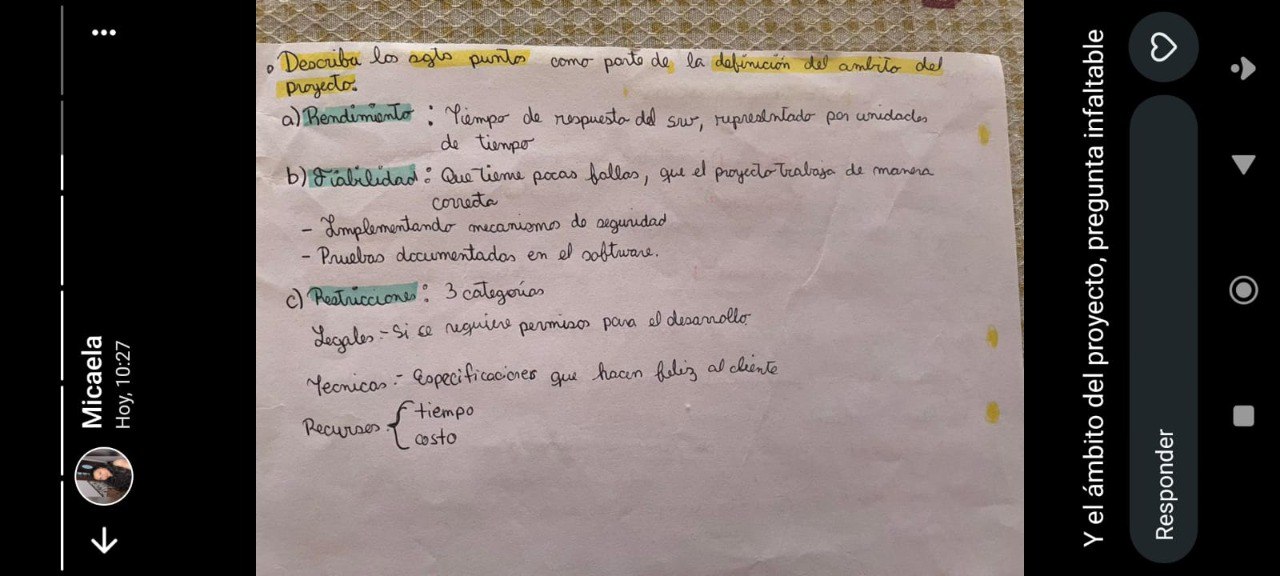 Micaela
Hoy, 10:27
• Describa los sgts puntos como parte de la definición del ambito del
proyecto.
a) Rendimiento : Tiempo de respuesta del sw, representado por unidades
de tiempo
b) Fiabilidad : Que tiene pocas fallas, que el proyecto trabaja de manera
correcta
- Implementando mecanismos de seguridad
- Pruebas documentadas en el software.
c) Restricciones : 3 categorías
Legales - Si se requiere permisos para el desarrollo
Tecnicas - Especificaciones que hacen feliz al cliente
Recursos { tiempo
costo
Y el ámbito del proyecto, pregunta infaltable
Responder